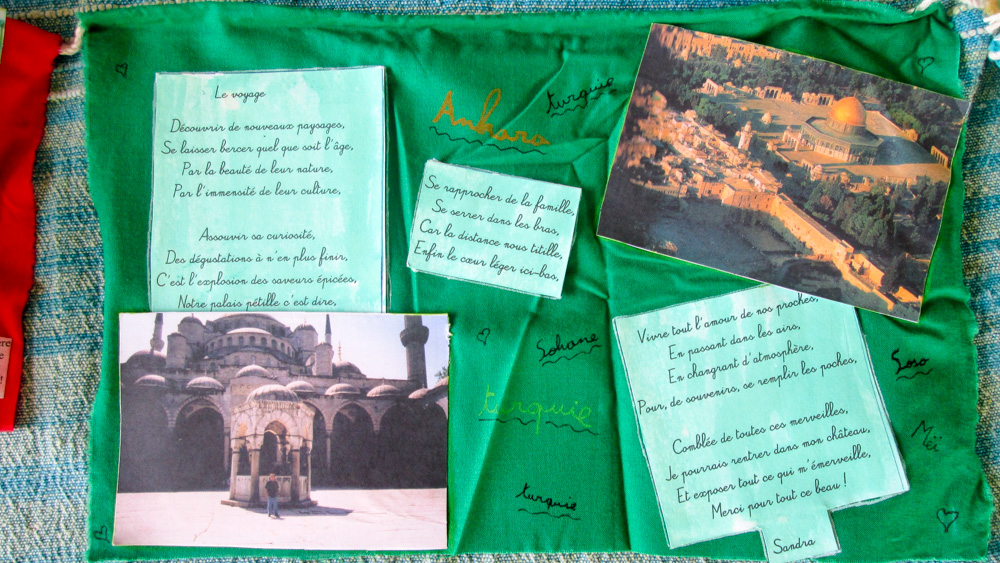 Le voyage
Découvrir de nouveaux paysages,
Se laisser bercer quel que soit l'âge,
Par la beauté de leur nature,
Par l'immensité de leur culture,
Assouvir sa curiosité,
Des dégustations à n'en plus finir,
C'est l'explosion des saveurs épicées,
Notre palais pétille c'est dire,
Ankara
turquie
Se rapprocher de la famille,
Se serrer dans les bras,
Car la distance nous titille,
Enfin le cœur léger ici-bas,
Sohane
turquie
turquie
Vivre tout l'amour de nos proches,
En passant dans les airs,
En changrant d'atmosphère,
Pour, de souvenirs, se remplir les poches,
Comblée de toutes ces merveilles,
Je pourrais rentrer dans mon château,
Et exposer tout ce qui m'émerveille,
Merci pour tout ce beau !
Sandra
Soso